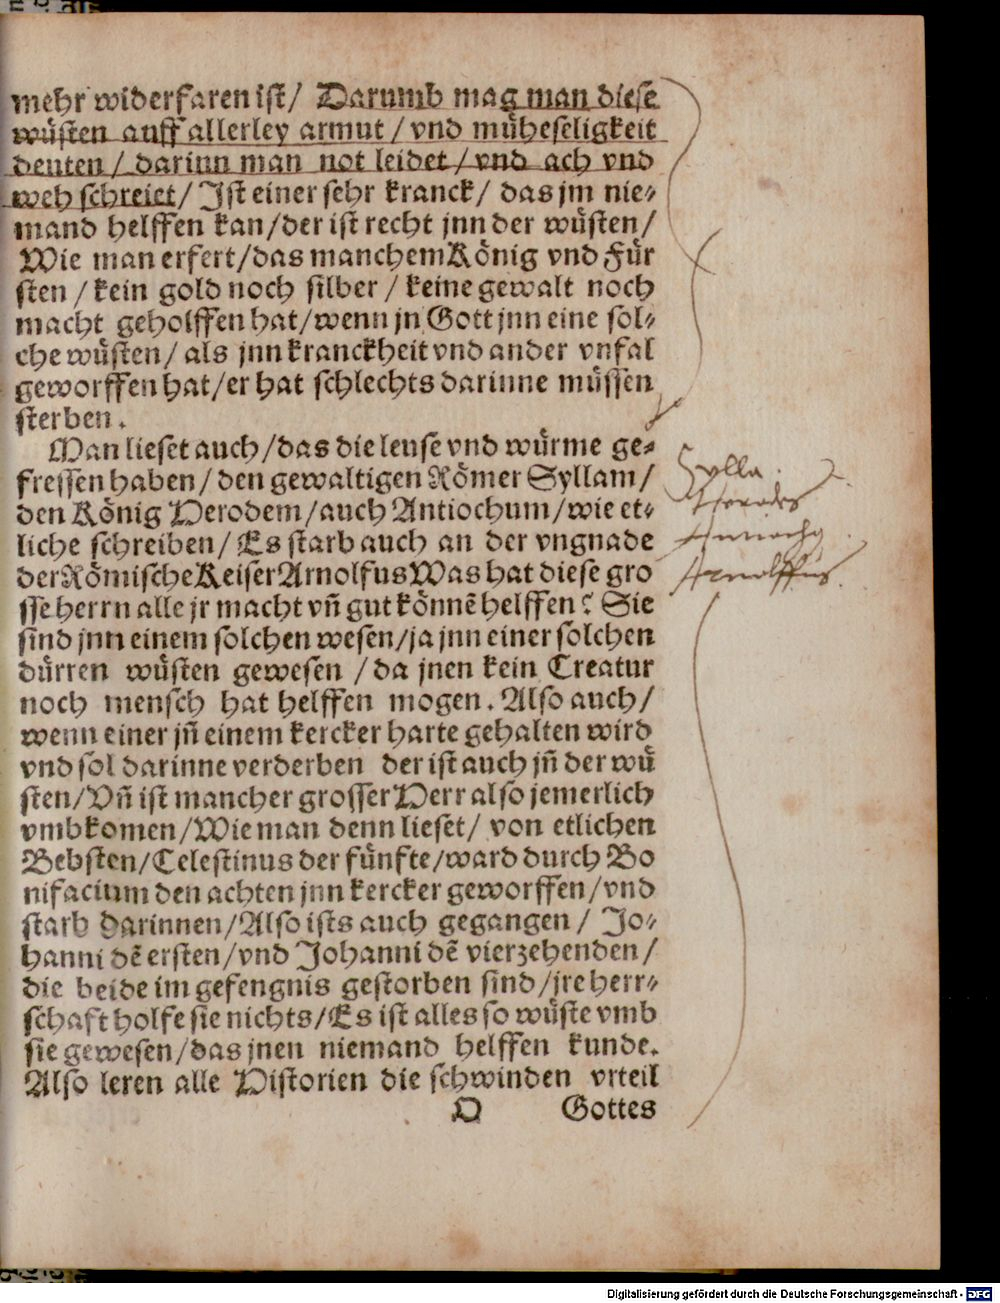 mehr widerfaren ist/ Darumb mag man diese
wüsten auff allerley armut/vnd müheseligkeit
deuten/ darinn man not leidet/vnd ach vnd
weh schreiet/ Ist einer sehr kranck/ das jm nie-
mand helffen kan/der ist recht jnn der wüsten/
Wie man erfert/das manchem König vnd Für
sten/kein gold noch silber/keine gewalt noch
macht geholffen hat/wenn jn Gott jnn eine sol-
che wüsten/ als jnn kranckheit vnd ander vnfal
geworffen hat/er hat schlechts darinne müssen
sterben.
Man lieset auch/das die leuse vnd würme ge-
fressen haben/den gewaltigen Römer Syllam/
den König Herodem/auch Antiochum/wie et-
liche schreiben/ Es starb auch an der vngnade
der Römische Keiser Arnolfus Was hat diese gro
sse herrn alle jr macht vñ gut könnē helffen? Sie
sind jnn einem solchen wesen/ja jnn einer solchen
dürren wüsten gewesen /da jnen kein Creatur
noch mensch hat helffen mogen. Also auch/
wenn einer jñ einem kercker harte gehalten wird
vnd sol darinne verderben der ist auch jñ der wü
sten/Vñ ist mancher grosser Herr also jemerlich
vmbkomen/Wie man denn lieset/ von etlichen
Bebsten/Celestinus der fünfte/ward durch Bo
nifacium den achten jnn kercker geworffen/vnd
starb darinnen/Also ists auch gegangen/ Jo-
hanni dē ersten/vnd Johanni dē vierzehenden/
die beide im gefengnis gestorben sind/jre herr-
schaft holfe sie nichts/Es ist alles so wüste vmb
sie gewesen/das jnen niemand helffen kunde.
Also leren alle Historien die schwinden vrteil
O Gottes
Sylla.
Herodes
Antiochus
Arnolffus.
Digitalisierung gefördert durch die Deutsche Forschungsgemeinschaft - DFG